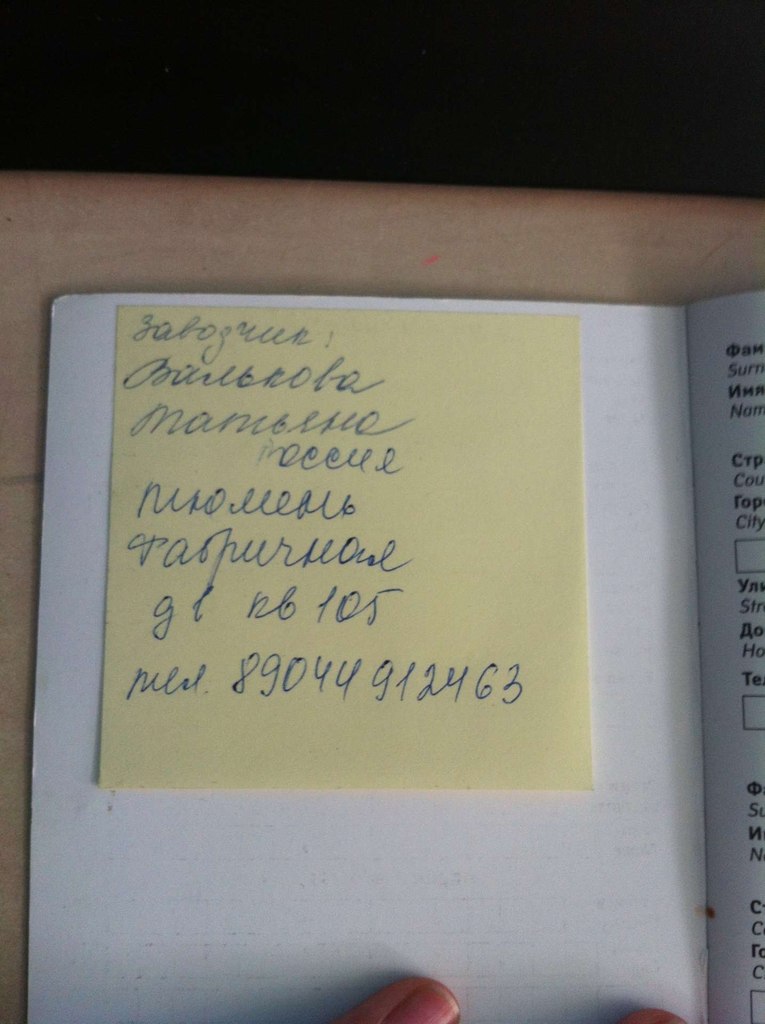 Заводчик:
Валькова
Татьяна
Россия
Тюмень
Фабричная
д1 кв 105
тел. 89044912463
Фам
Surn
Имя
Nam
Стр
Cou
Горо
City
Ули
Stre
До
Ho
Тел
Фа
Su
И
N
С
C
Го
C